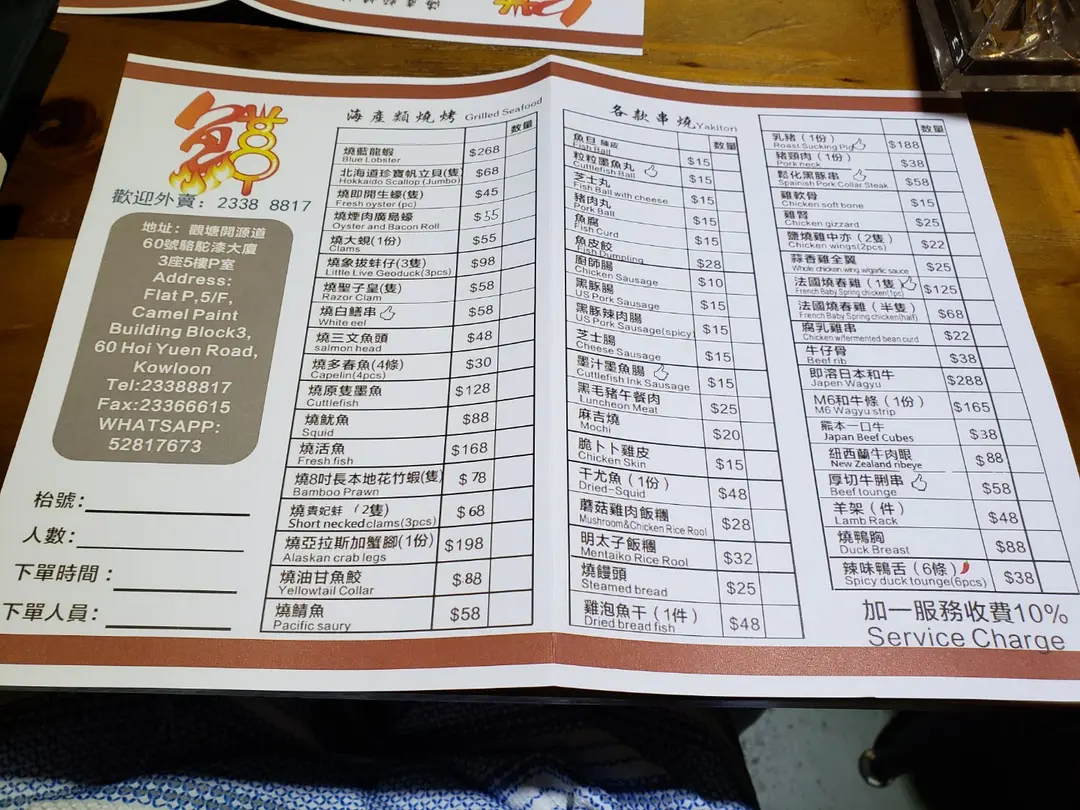 歡迎外賣：2338 8817
地址：觀塘開源道
60號駱駝漆大廈
3座5樓P室
Address:
Flat P,5/F,
Camel Paint
Building Block3,
60 Hoi Yuen Road,
Kowloon
Tel:23388817
Fax:23366615
WHATSAPP:
52817673
枱號：
人數：
下單時間：
下單人員：
海產類燒烤 Grilled Seafood
數量
燒藍龍蝦 $268
Blue Lobster
北海道珍寶帆立貝(隻) $68
Hokkaido Scallop (Jumbo)
燒即開生蠔(隻) $45
Fresh oyster (pc)
燒煙肉廣島蠔 $55
Oyster and Bacon Roll
燒大蜆(1份) $55
Clams
燒象拔蚌仔(3隻) $98
Little Live Geoduck(3pcs)
燒聖子皇(隻) $58
Razor Clam
燒白鱔串 $58
White eel
燒三文魚頭 $48
salmon head
燒多春魚(4條) $30
Capelin(4pcs)
燒原隻墨魚 $128
Cuttlefish
燒魷魚 $88
Squid
燒活魚 $168
Fresh fish
燒8吋長本地花竹蝦(隻) $78
Bamboo Prawn
燒貴妃蚌（2隻） $68
Short necked clams(3pcs)
燒亞拉斯加蟹腳(1份) $198
Alaskan crab legs
燒油甘魚鮫 $88
Yellowtail Collar
燒鯖魚 $58
Pacific saury
各款串燒 Yakitori
數量
魚旦 辣皮 $15
Fish Ball
粒粒墨魚丸 $15
Cuttlefish Ball
芝士丸 $15
Fish Ball with cheese
豬肉丸 $15
Pork Ball
魚腐 $15
Fish Curd
魚皮餃 $28
Fish Dumpling
廚師腸 $10
Chicken Sausage
黑豚腸 $15
US Pork Sausage
黑豚辣肉腸 $15
US Pork Sausage(spicy)
芝士腸 $15
Cheese Sausage
墨汁墨魚腸 $15
Cuttlefish Ink Sausage
黑毛豬午餐肉 $25
Luncheon Meat
麻吉燒 $20
Mochi
脆卜卜雞皮 $15
Chicken Skin
干尤魚（1份） $48
Dried-Squid
蘑菇雞肉飯糰 $28
Mushroom&Chicken Rice Rool
明太子飯糰 $32
Mentaiko Rice Rool
燒饅頭 $25
Steamed bread
雞泡魚干（1件） $48
Dried bread fish
數量
乳豬（1份） $188
Roast Sucking Pig
豬頸肉（1份） $38
Pork neck
鬆化黑豚串 $58
Spainish Pork Collar Steak
雞軟骨 $15
Chicken soft bone
雞腎 $25
Chicken gizzard
鹽燒雞中亦（2隻） $22
Chicken wings(2pcs)
蒜香雞全翼 $25
Whole chicken wing w/garlic sauce
法國燒春雞（1隻） $125
French Baby Spring chicken(1pc)
法國燒春雞（半隻） $68
French Baby Spring chicken(half)
腐乳雞串 $22
Chicken w/fermented bean curd
牛仔骨 $38
Beef rib
即溶日本和牛 $288
Japen Wagyu
M6和牛條（1份） $165
M6 Wagyu strip
熊本一口牛 $38
Japan Beef Cubes
紐西蘭牛肉眼 $88
New Zealand ribeye
厚切牛脷串 $58
Beef tounge
羊架（件） $48
Lamb Rack
燒鴨胸 $88
Duck Breast
辣味鴨舌（6條） $38
Spicy duck tounge(6pcs)
加一服務收費10%
Service Charge